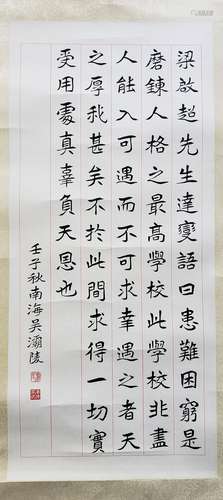 梁啟超先生達變語曰患難困窮是
磨鍊人格之最高學校此學校非盡
人能入可遇而不可求幸遇之者天
之厚我甚矣不於此間求得一切實
受用處真辜負天恩也
壬子秋南海吳灞陵